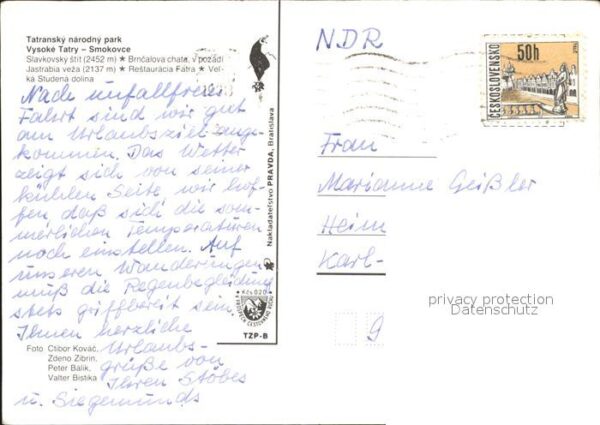 Tatranský národný park
Vysoké Tatry – Smokovce
Slavkovský štít (2452 m) ★ Brnčalova chata, v pozadí
Jastrabia veža (2137 m) ★ Reštaurácia Fatra ★ Veľ-
ká Studená dolina
Nach unfallfreier
Fahrt sind wir gut
am Urlaubsziel ange-
kommen. Das Wetter
zeigt sich von seiner
kühlen Seite, wir hof-
fen, daß sich die som-
merlichen Temperaturen
noch einstellen. Auf
unseren Wanderungen
muß die Regenbegleidung
stets griffbereit sein.
Ihnen herzliche
Urlaubs-
grüße von
Ihren Stöbes
u. Siegemunds
Foto: Ctibor Kováč,
Zdeno Zibrin,
Peter Bálik,
Valter Bistika
Nakladateľstvo PRAVDA, Bratislava
Kčs 0,20
TZP-B
NDR
ČESKOSLOVENSKO
50h
TELČ
Frau
Marianne Geißler
Heim
Karl-
9
privacy protection
Datenschutz